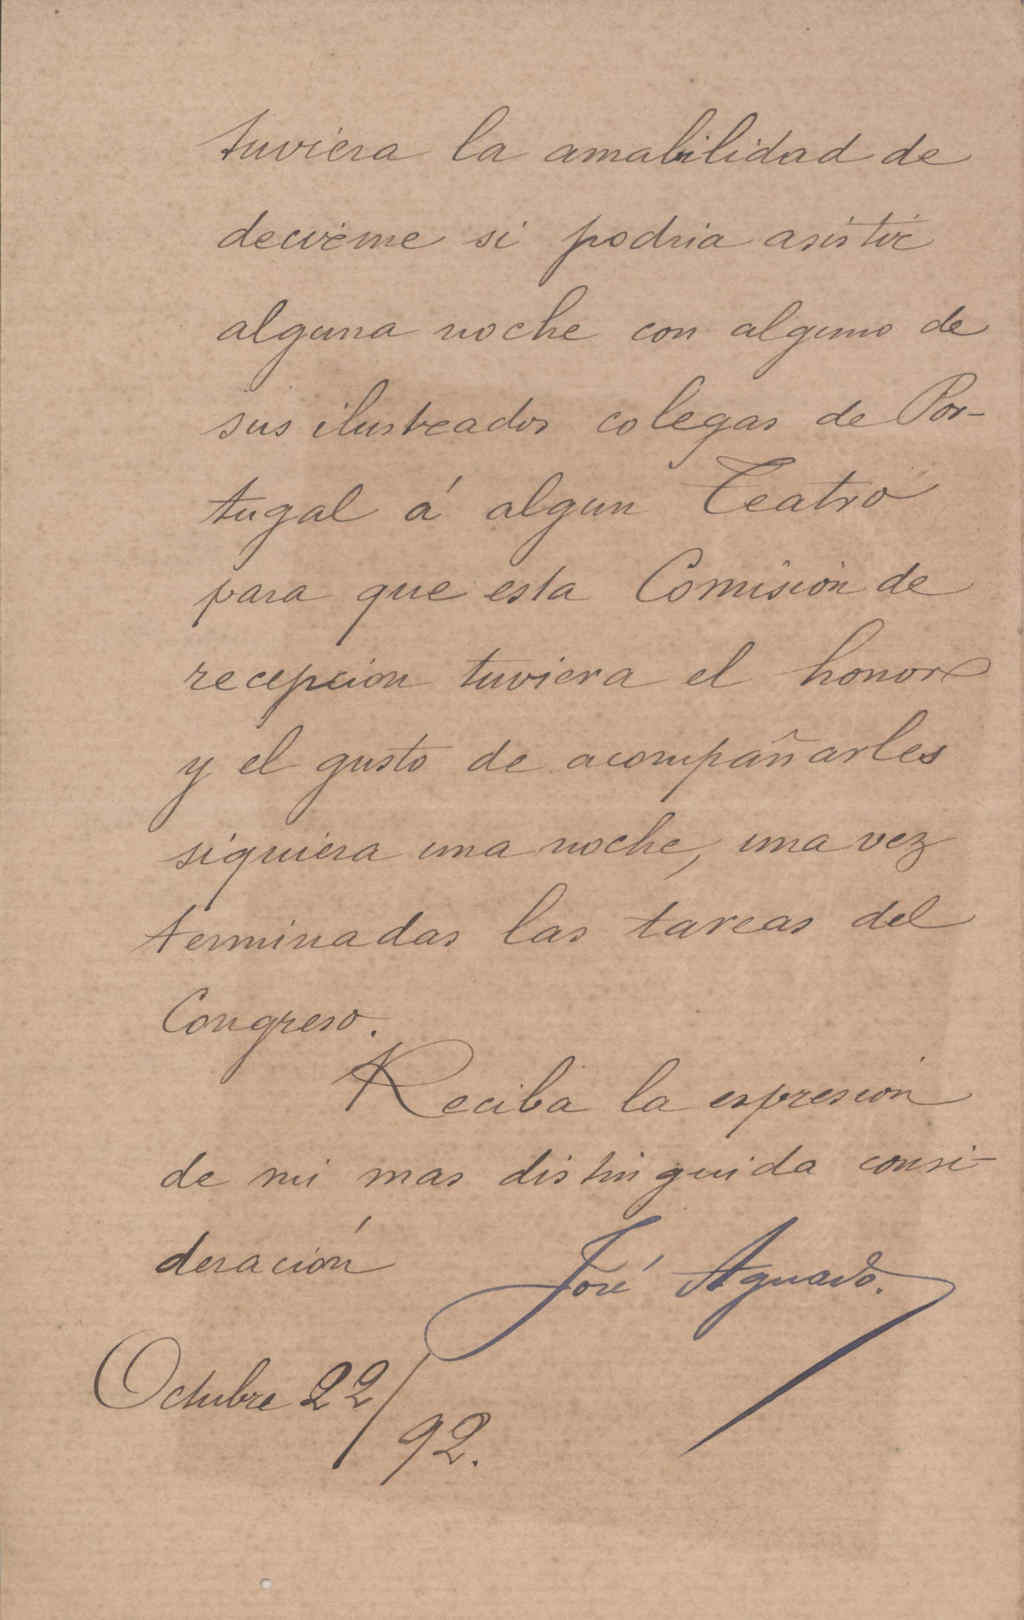 tuviera la amabilidad de
decirme si podria asistir
alguna noche con alguno de
sus ilustrados colegas de Por-
tugal á algun Teatro
para que esta Comisión de
recepcion tuviera el honor
y el gusto de acompañarles
siquiera una noche, una vez
terminadas las tareas del
Congreso.
Reciba la espresion
de mi mas distinguida consi-
deración
José Aguado.
Octubre 22/92.